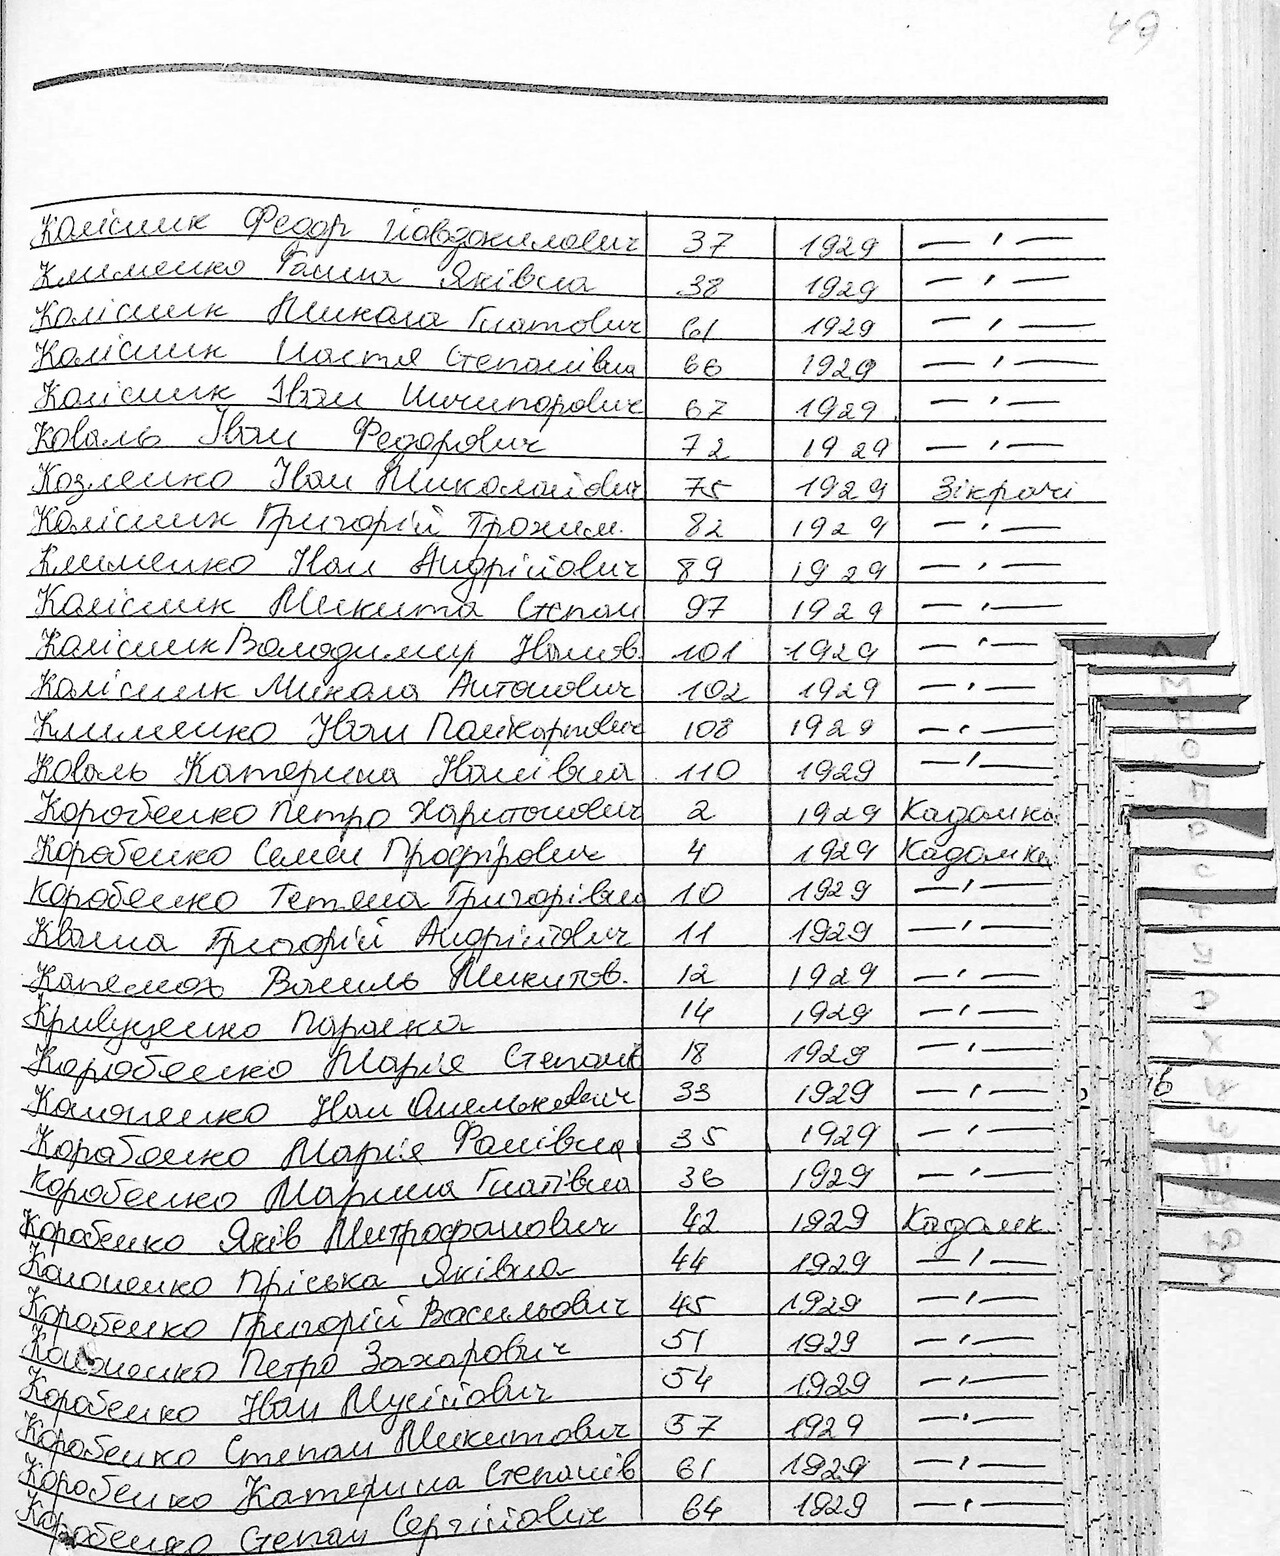 49
Колісник Федор Йовдокимович 37 1929 — ' —
Клименко Ганна Яківна 38 1929 — ' —
Колісник Микола Гнатович 61 1929 — ' —
Колісник Настя Степанівна 66 1929 — ' —
Колісник Іван Ничипорович 67 1929 — ' —
Коваль Іван Федорович 72 1929 — ' —
Козленко Іван Миколайович 75 1929 Зікрачі
Колісник Григорій Трохим. 82 1929 — ' —
Клименко Іван Андрійович 89 1929 — ' —
Колісник Микита Степан 97 1929 — ' —
Колісник Володимир Іванов. 101 1929 — ' —
Колісник Микола Антонович 102 1929 — ' —
Клименко Іван Полікарпович 108 1929 — ' —
Коваль Катерина Іванівна 110 1929 — ' —
Коробенко Петро Харитонович 2 1929 Кадомка
Коробенко Семен Профірович 4 1929 Кадомка
Коробенко Тетяна Григорівна 10 1929 — ' —
Кваша Григорій Андрійович 11 1929 — ' —
Капелюх Василь Микитов. 12 1929 — ' —
Кривущенко Параска 14 1929 — ' —
Коробенко Марія Степанів 18 1929 — ' —
Кононенко Іван Омелькович 33 1929 — ' —
Коробенко Марія Фанівна 35 1929 — ' —
Коробенко Марина Гнатівна 36 1929 — ' —
Коробенко Яків Митрофанович 42 1929 Кадомк
Кононенко Пріська Яківна 44 1929 — ' —
Коробенко Григорій Васильович 45 1929 — ' —
Кононенко Петро Захарович 51 1929 — ' —
Коробенко Іван Мусійович 54 1929 — ' —
Коробенко Степан Микитович 57 1929 — ' —
Коробенко Катерина Степанів 61 1929 — ' —
Коробенко Степан Сергійович 64 1929 — ' —